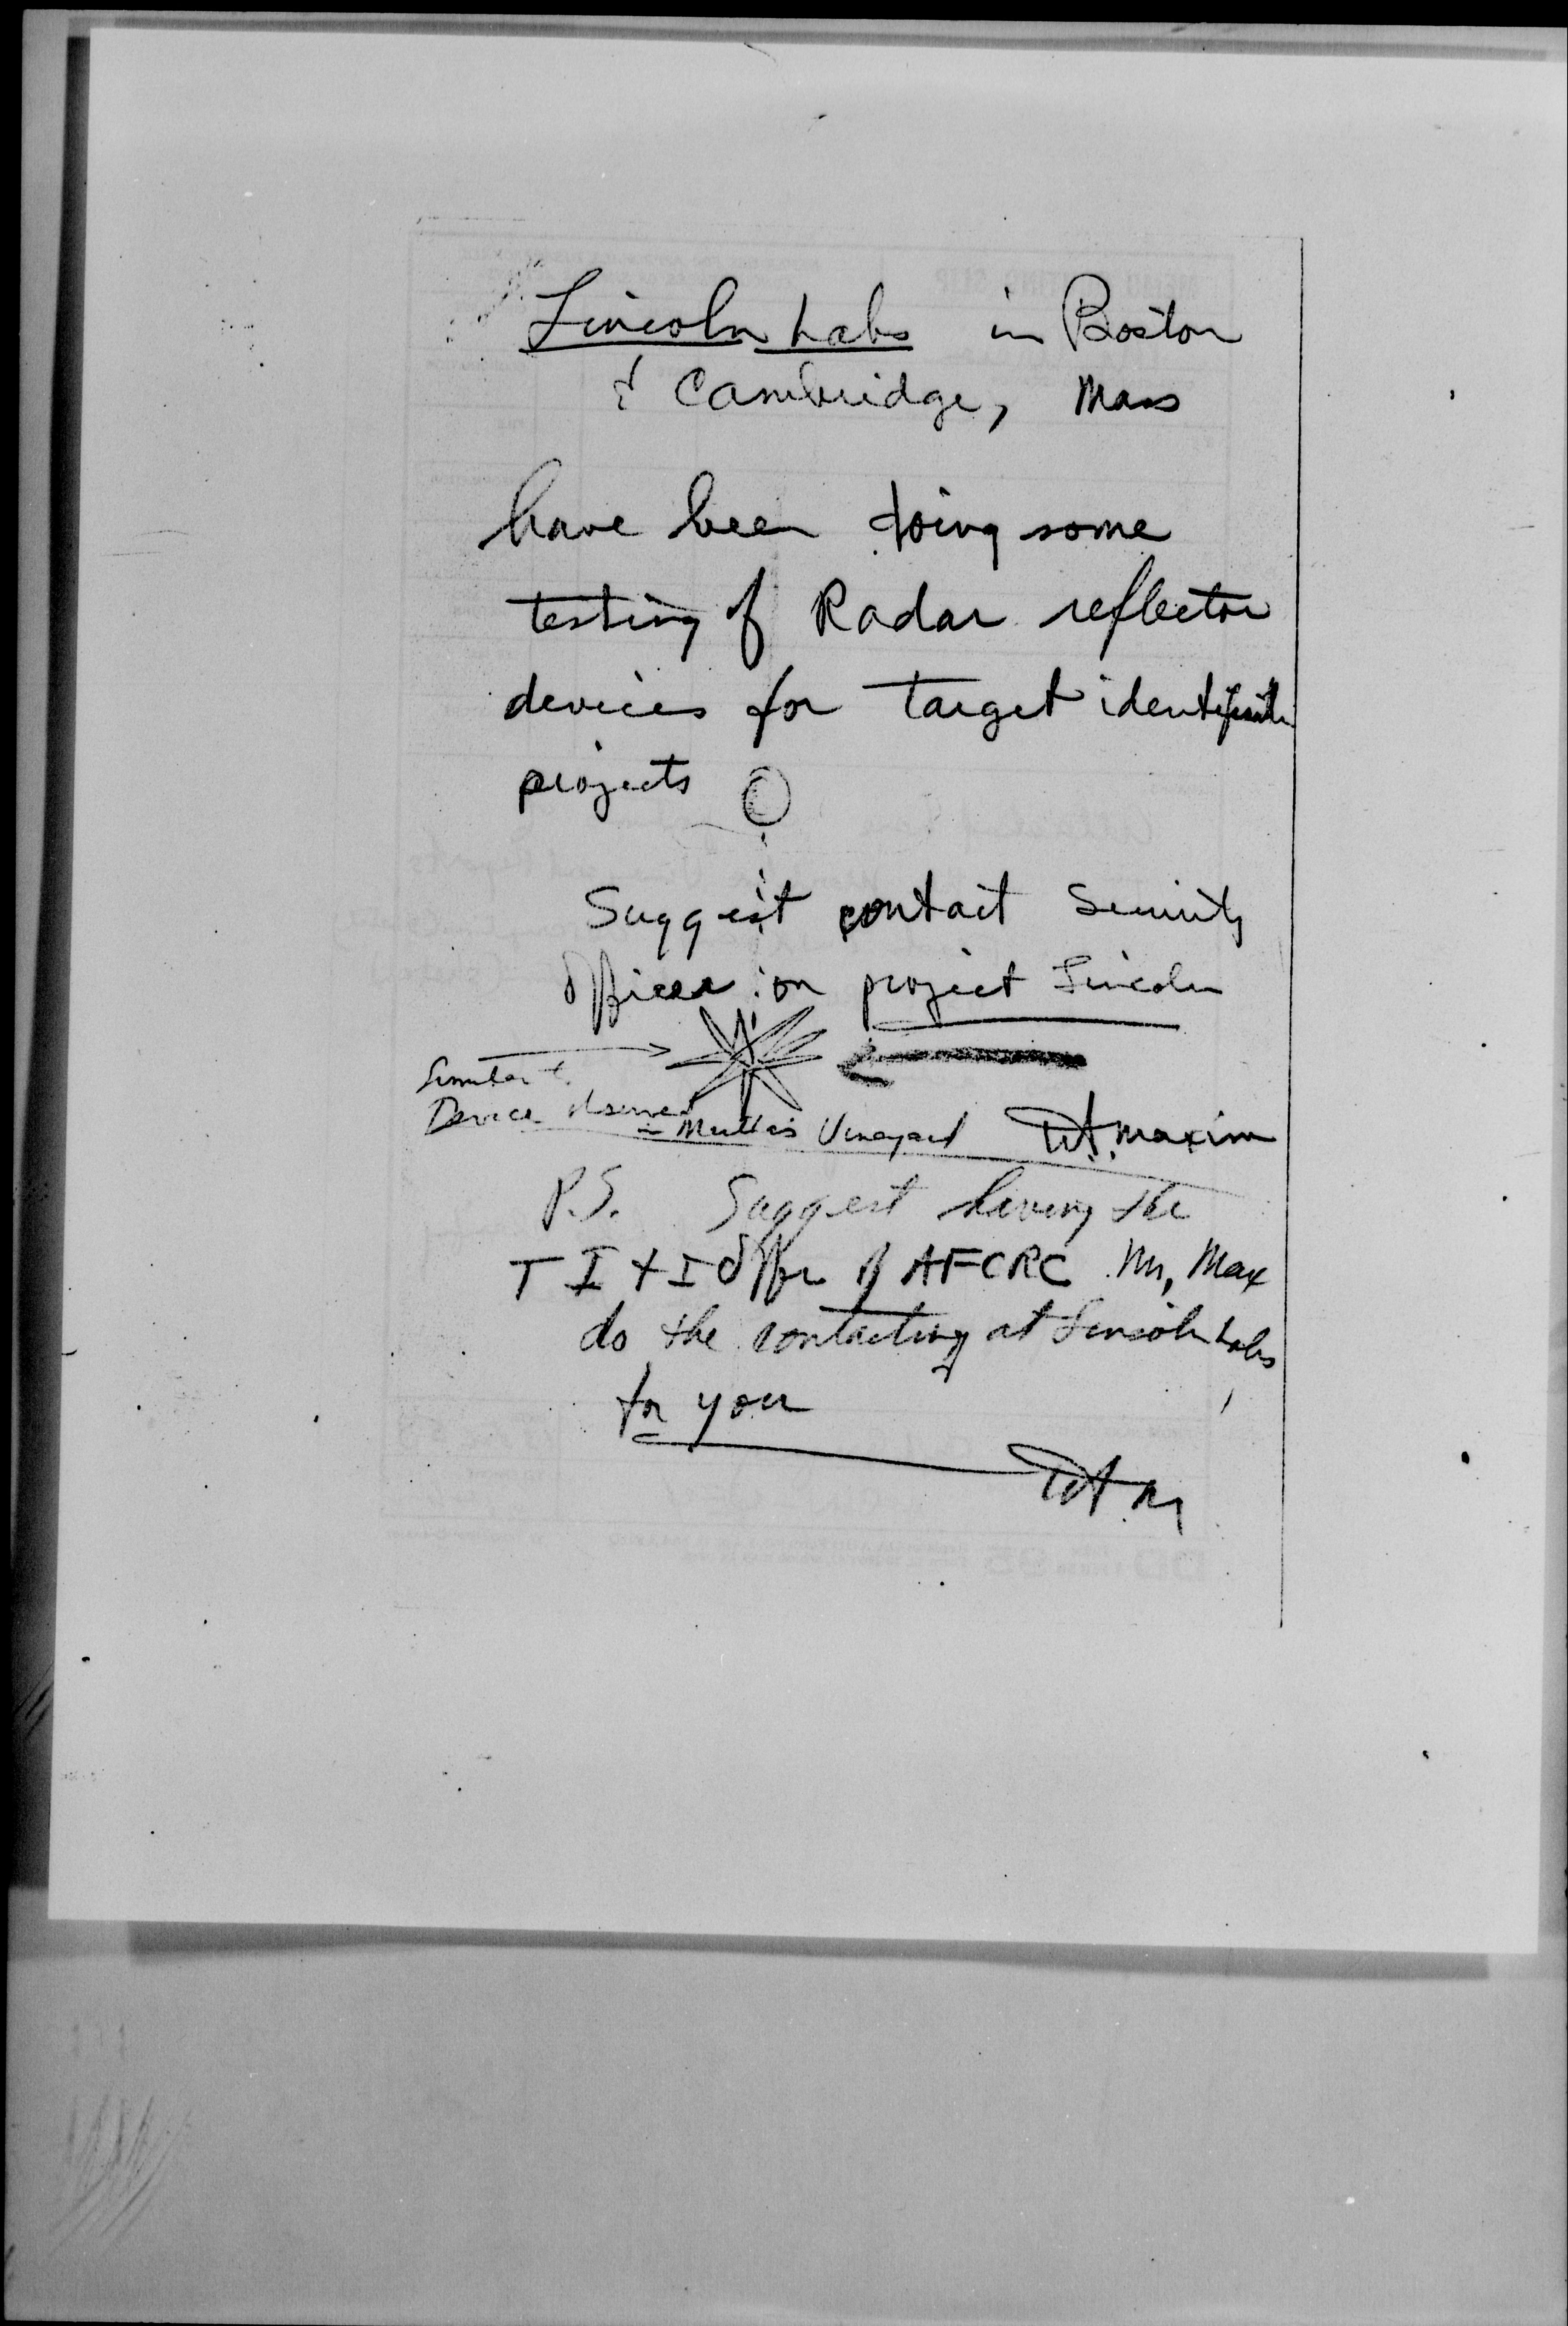 Lincoln Labs in Boston
& Cambridge, Mass
have been doing some
testing of Radar reflector
devices for target
projects
Suggest contact Security
Officer on project Lincoln
Similar to
Device observed
in Martha's Vineyard W.A. Maxim
P.S. Suggest having the
T I & I Office of AFCRC Mr, Max
do the contacting at Lincoln Labs
for you
WAM